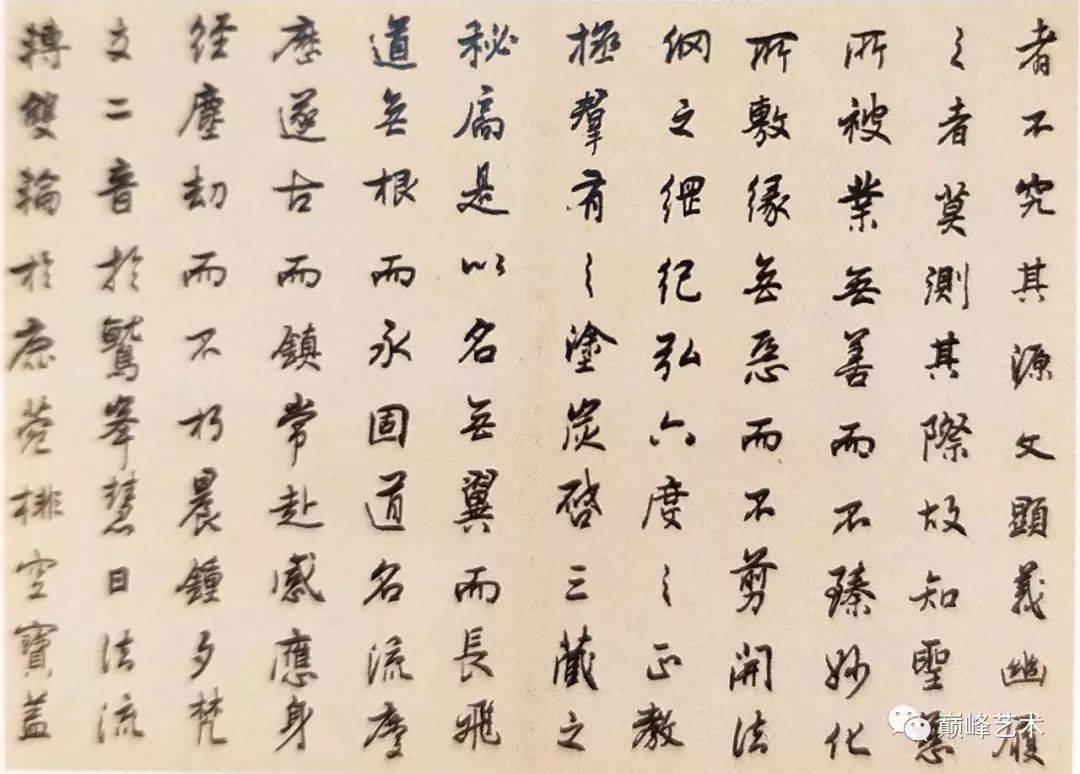 者不究其源文顯義幽履
之者莫測其際故知聖慈
所被業無善而不臻妙化
所敷緣無惡而不剪開法
網之綱紀弘六度之正教
拯羣有之塗炭啓三藏之
秘扃是以名無翼而長飛
道無根而永固道名流慶
歷遂古而鎮常赴感應身
經塵劫而不朽晨鍾夕梵
交二音於鷲峯慧日法流
轉雙輪於鹿菀排空寶蓋
巅峰艺术